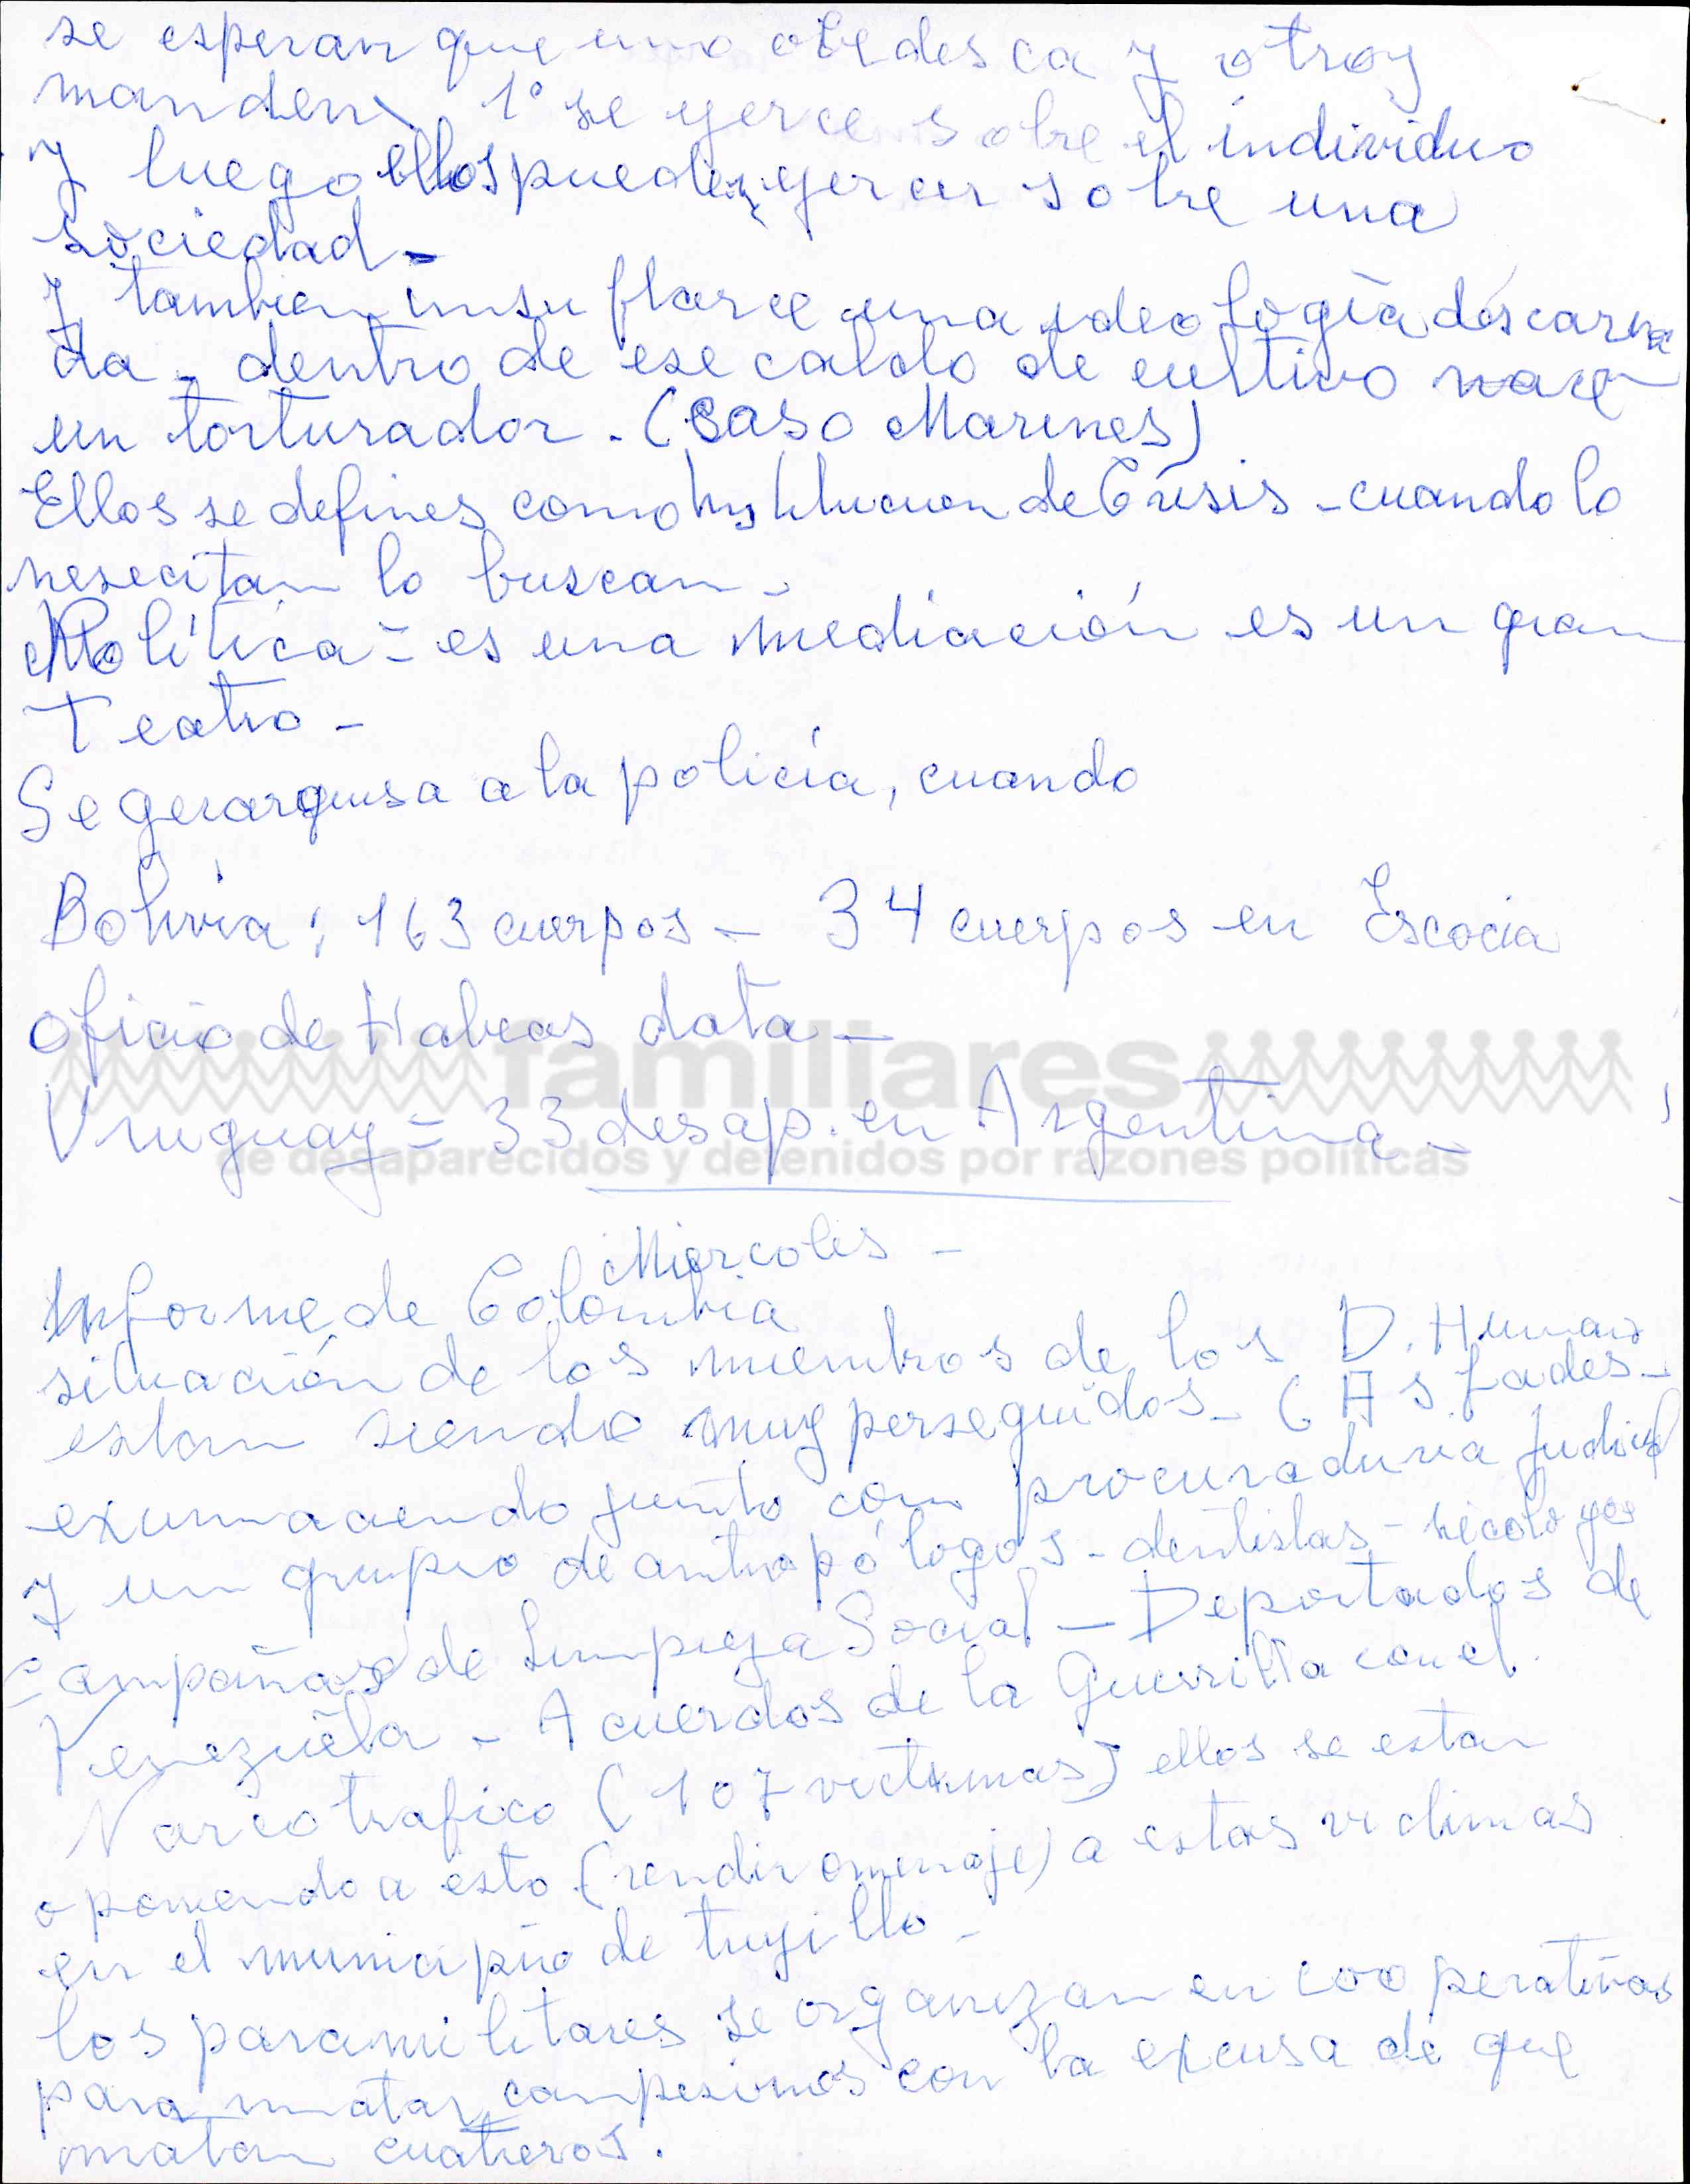 se esperan que uno obedesca y otroy
manden. 1° se ejerce sobre el individuo
y luego ellos pueden ejercer sobre una
sociedad -
y tambien insuflarce una ideología descarna
da - dentro de ese caldo de cultivo nace
un torturador - (Caso Marines)
Ellos se defines como Institucion de Crisis - cuando lo
nesecitan lo buscan -
Política = es una mediación es un gran
Teatro -
Se gerarquisa a la policía, cuando
Bolivia : 163 cuerpos - 34 cuerpos en Escocia
oficio de Habeas data -
familiares
Uruguay = 33 desap. en Argentina -
de desaparecidos y detenidos por razones políticas
Miercoles -
Informe de Colombia
situación de los miembros de los D. Humanos
estan siendo muy perseguidos - (Asfades -
exumaciendo junto con procuraduria Judicial
y un grupo de antropólogos - dentistas - sicologos
Campañas de Limpieza Social - Deportados de
Venezuela - Acuerdos de la Guerrilla con el
Narcotrafico (107 victimas) ellos se estan
oponiendo a esto (rendir omenaje) a estas victimas
en el municipio de trujillo -
los paramilitares se organizan en cooperativas
para matar campesinos con la excusa de que
matan cuatreros.